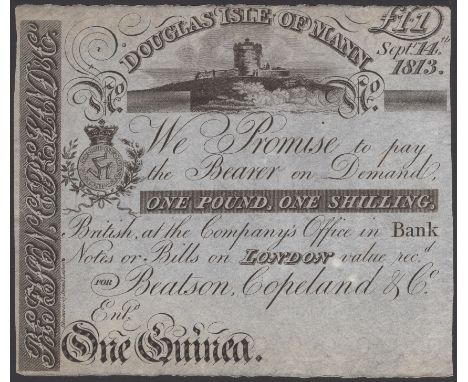 DOUGLAS ISLE OF MANN.
£1.1
Sept.r 14.th
1813.
No. No.
We Promise to pay
the Bearer on Demand,
ONE POUND, ONE SHILLING,
British, at the Company's Office in Bank
Notes or Bills on LONDON value rec.d
FOR Beatson, Copeland & C.o
Ent.d
One Guinea.